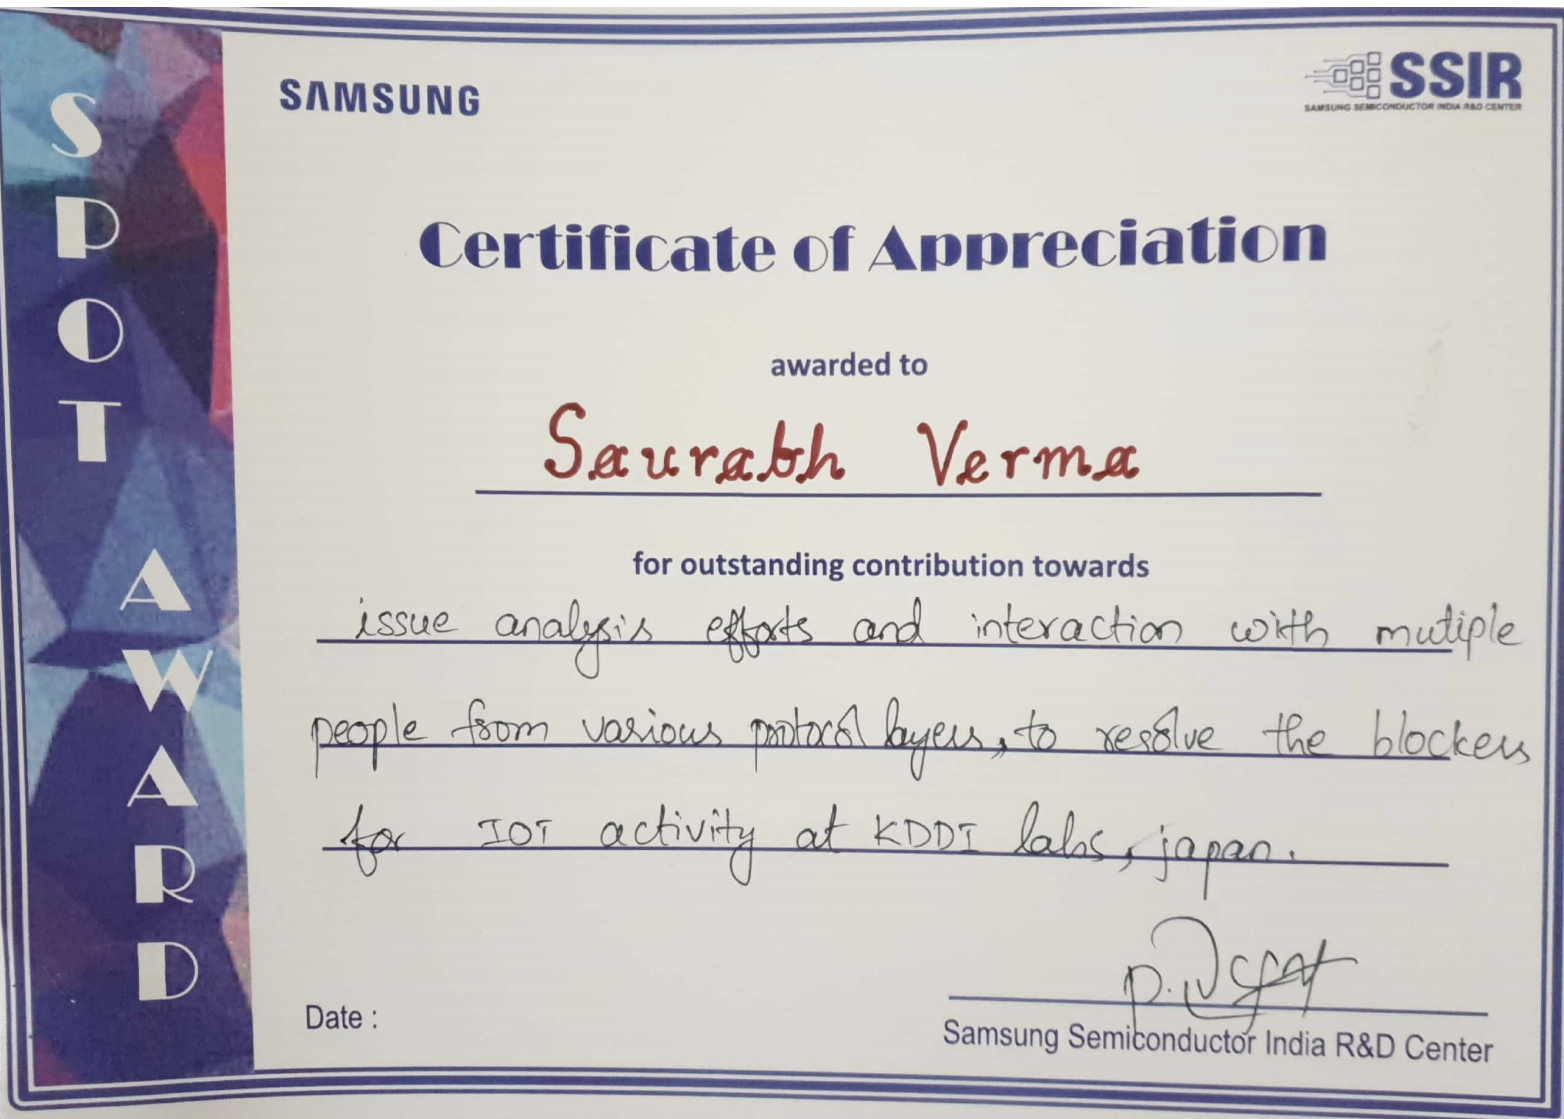 SPOT AWARD
SAMSUNG
SSIR
SAMSUNG SEMICONDUCTOR INDIA R&D CENTER
Certificate of Appreciation
awarded to
Saurabh Verma
for outstanding contribution towards
issue analysis efforts and interaction with mutiple
people from various protocol layers, to resolve the blockers
for IOT activity at KDDI labs, japan.
Date :
Samsung Semiconductor India R&D Center